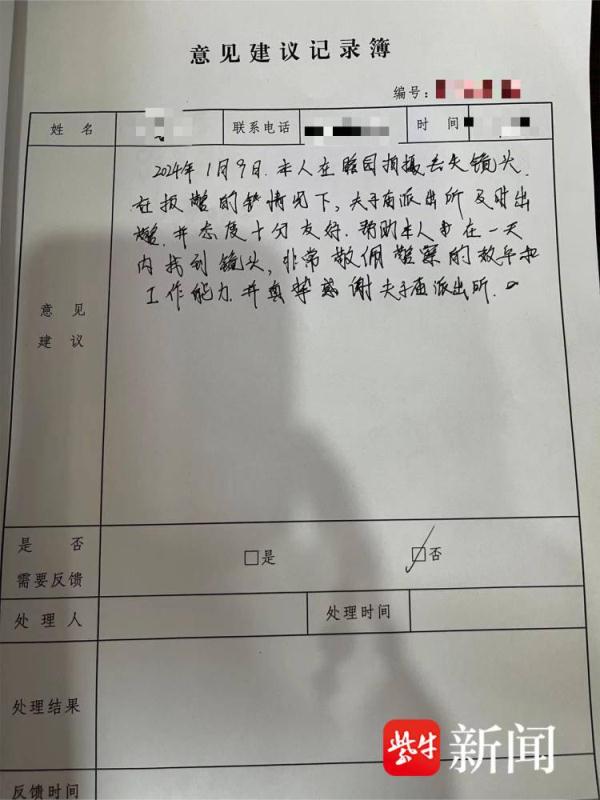 意见建议记录簿
编号：
姓名 联系电话 时间
2024年1月9日.本人在瞻园拍摄丢失镜头.
在报警的情况下，夫子庙派出所及时出
警.并态度十分友好.帮助本人在一天
内找到镜头，非常敬佩警察的效率和
工作能力.并真挚感谢夫子庙派出所.
意见
建议
是否
需要反馈
□是 □否
处理人 处理时间
处理结果
反馈时间
紫牛新闻